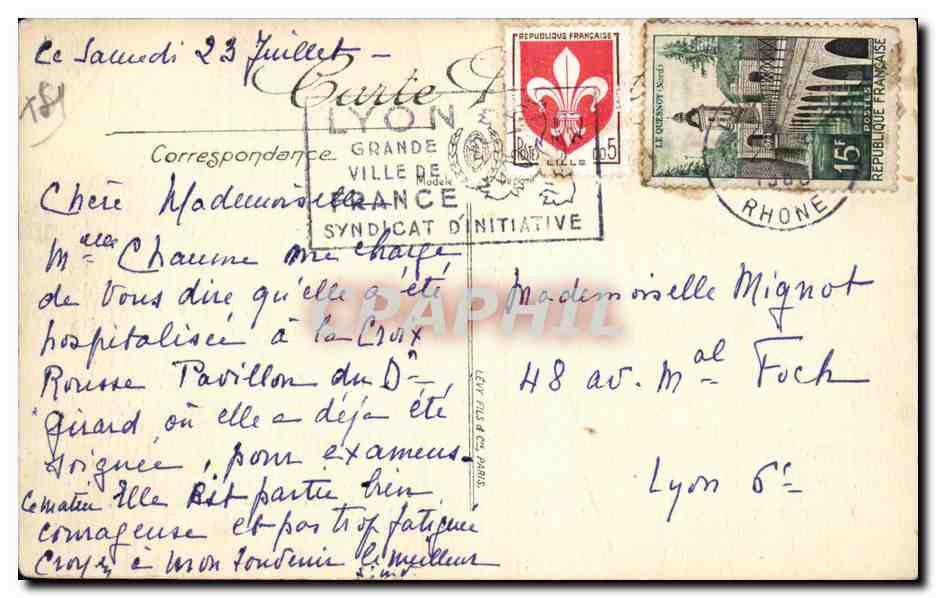 Ce Samedi 23 Juillet -
Carte P
Correspondance
Modèle
LYON
GRANDE
VILLE DE
FRANCE
SYNDICAT D'INITIATIVE
REPUBLIQUE FRANÇAISE
POSTES
0,05
LILLE
LE QUESNOY (Nord)
15F
POSTES
REPUBLIQUE FRANÇAISE
RHONE
Chère Mademoiselle
Melle Chaume me charge
de vous dire qu'elle a été
hospitalisée à la Croix
Rousse Pavillon du Dr
Girard où elle a déjà été
soignée, pour examens.
Ce matin Elle est partie bien
courageuse et pas trop fatiguée
Croyez à mon souvenir le meilleur
LÉVY FILS & Cie, PARIS.
Mademoiselle Mignot
48 av. Mal Foch
Lyon 6e
CPARPHIL